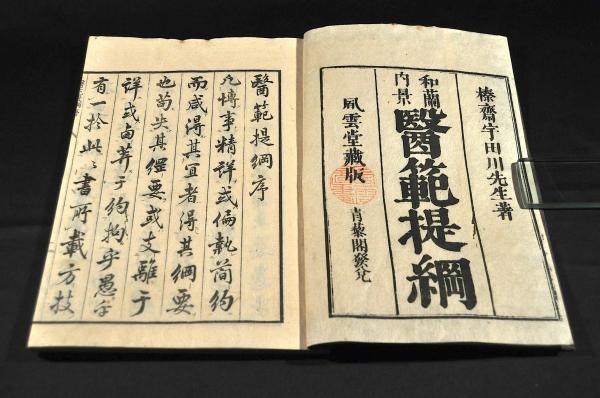 榛齋宇田川先生著
和蘭
内景
醫範提綱
風雲堂藏版
青藜閣發兌
醫範提綱序
凡博事精詳或偏執简約
而咸得其宜者得其綱要
也苟失其綱要或支離于
詳或鹵莽于約拘乎愚乎
有一於此々書所載方技